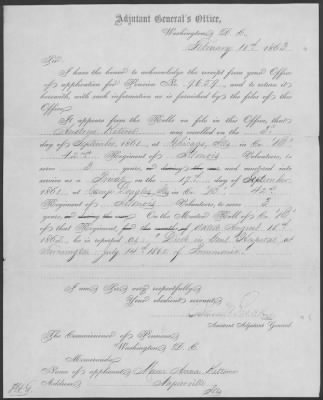 Adjutant General's Office,
Washington, D. C.
February 11th, 1863
Sir:
I have the honor to acknowledge the receipt from your Office
of application for Pension No. 9629, and to return it
herewith, with such information as is furnished by the files of this
Office.
It appears from the Rolls on file in this Office, that
Andrew was enrolled on the
day of September, 1861, at Chicago, Ills in Co.
42nd Regiment of Illinois Volunteers, to
serve 3 years, and mustered into
service as a Private on the 17th day of September
1861, at Camp Douglas, Ills in Co. 42nd
Regiment of Illinois Volunteers, to serve 3
years, On the Muster Roll of Co.
of that Regiment, dated August 18th
1862, he is reported as: "Died in Genl Hospital at
Farmington July 14th 1862 of
I am, Sir, very respectfully,
Your obedient servant,
Assistant Adjutant General
The Commissioner of Pensions,
Washington, D. C.
Memoranda:
Name of applicant, Anna
Address, Naperville
Ills